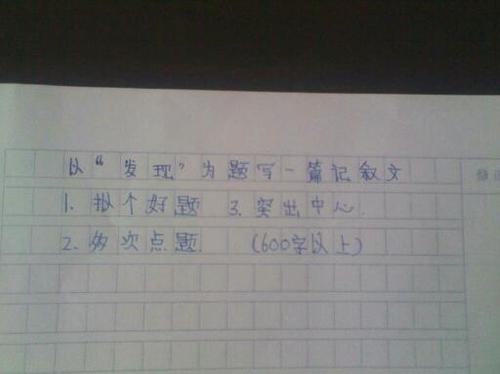 以“发现”为题写一篇记叙文
1. 拟个好题 3. 突出中心.
2. 多次点题. (600字以上)